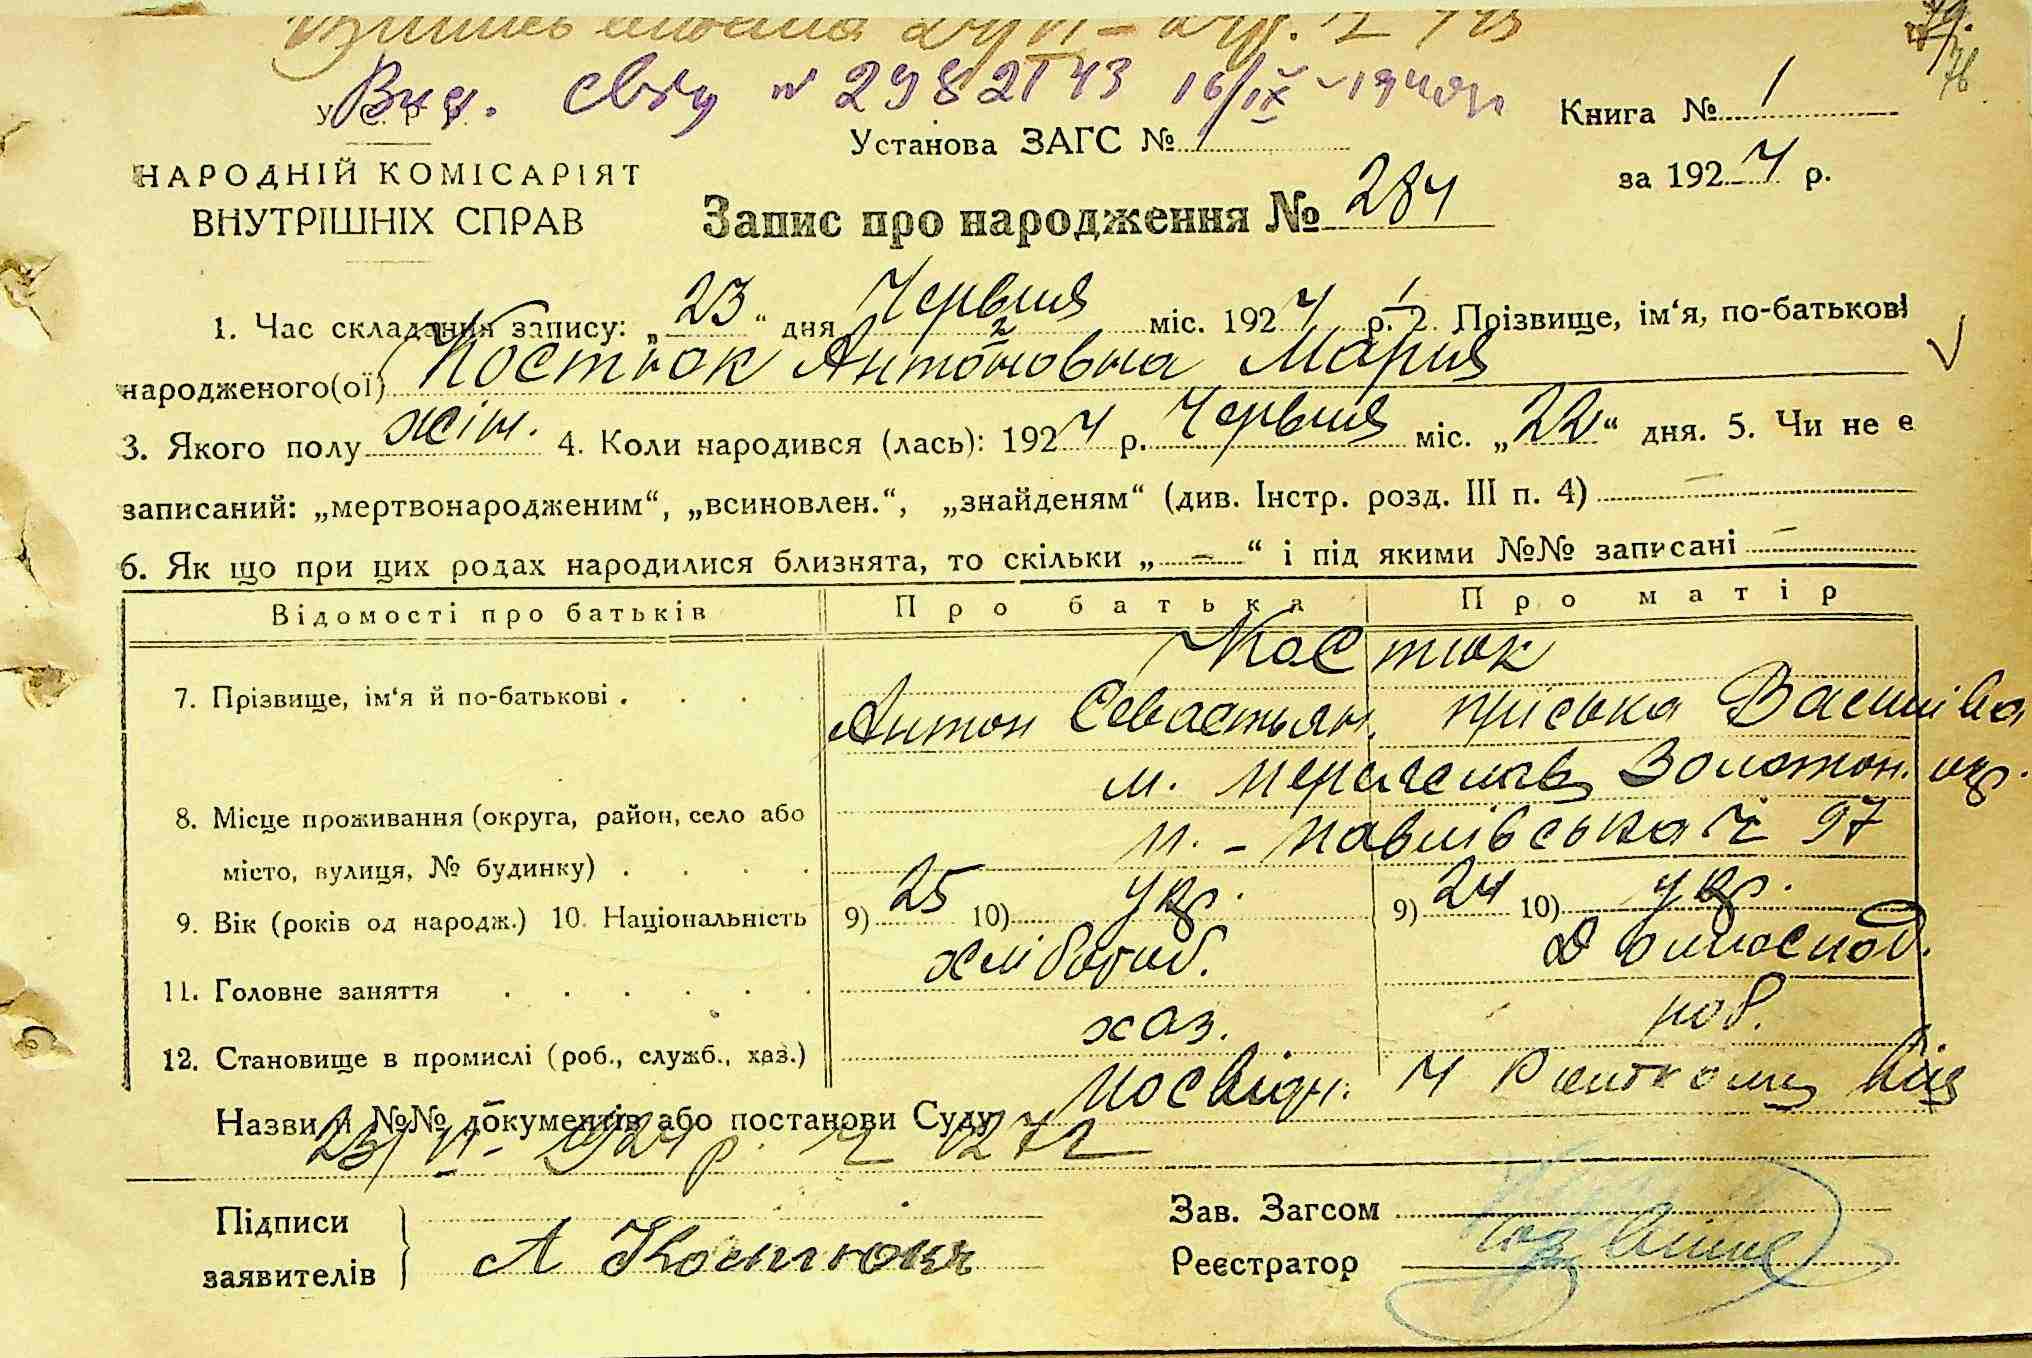 79.
76
Вид. свід. № 2982143 16/IX-1940р.
У. С. Р. Р.
Книга № 1
Установа ЗАГС № 1
за 1924 р.
НАРОДНІЙ КОМІСАРІЯТ
ВНУТРІШНІХ СПРАВ
Запис про народження № 284
1. Час складання запису: „23“ дня Червня міс. 1924 р. 2. Прізвище, ім‘я, по-батькові
народженого(ої) Костюк Антоновна Мария
3. Якого полу жін. 4. Коли народився (лась): 1924 р. Червня міс. „22“ дня. 5. Чи не є
записаний: „мертвонародженим“, „всиновлен.“, „знайденям“ (див. Інстр. розд. III п. 4) —
6. Як що при цих родах народилися близнята, то скільки „—“ і під якими №№ записані —
Відомості про батьків Про батька Про матір
Костюк
7. Прізвище, ім‘я й по-батькові . . . . Антон Севастьян. Пріська Василівна
м. Переяслав Золотон. окр.
8. Місце проживання (округа, район, село або
П.-Павлівська ч 97
місто, вулиця, № будинку) . . . .
9. Вік (років од народж.) 10. Національність 9) 25 10) укр. 9) 24 10) укр.
11. Головне заняття . . . . . . хлібороб. Домоспод.
12. Становище в промислі (роб., служб., хаз.) хаз. роб.
Назви й №№ документів або постанови Суду Посвідч. від
23/VI-1924 р. ч 1272
Підписи
заявителів
А Костюк
Зав. Загсом
Реєстратор